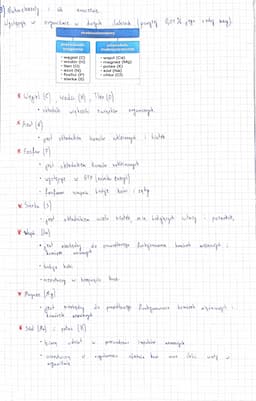 Makroelementy i ich znaczenie.
Występują w organizmie w dużych ilościach (powyżej 0,01% jego suchej masy).
makroelementy
pierwiastki biogenne
węgiel (C)
wodór (H)
tlen (O)
azot (N)
fosfor (P)
siarka (S)
pozostałe makroelementy
wapń (Ca)
magnez (Mg)
potas (K)
sód (Na)
chlor (Cl)
* Węgiel (C), wodór (H), Tlen (O)
• składnik większości związków organicznych.
* Azot (N)
• jest składnikiem kwasów nukleinowych i białek
* Fosfor (P)
• jest składnikiem kwasów nukleinowych
• występuje w ATP (nośniku energii)
• fosforany wapnia budują kości i zęby
* Siarka (S)
• jest składnikiem wielu białek, m.in. budujących włosy i paznokcie,
* Wapń (Ca)
• jest niezbędny do prawidłowego funkcjonowania komórek mięśniowych i komórek nerwowych
• buduje kości
• uczestniczy w krzepnięciu krwi
* Magnez (Mg)
• jest niezbędny do prawidłowego funkcjonowania komórek mięśniowych i komórek nerwowych
* Sód (Na) i potas (K)
• biorą udział w przewodzeniu impulsów nerwowych
• uczestniczą w regulowaniu ciśnienia krwi oraz ilości wody w organizmie